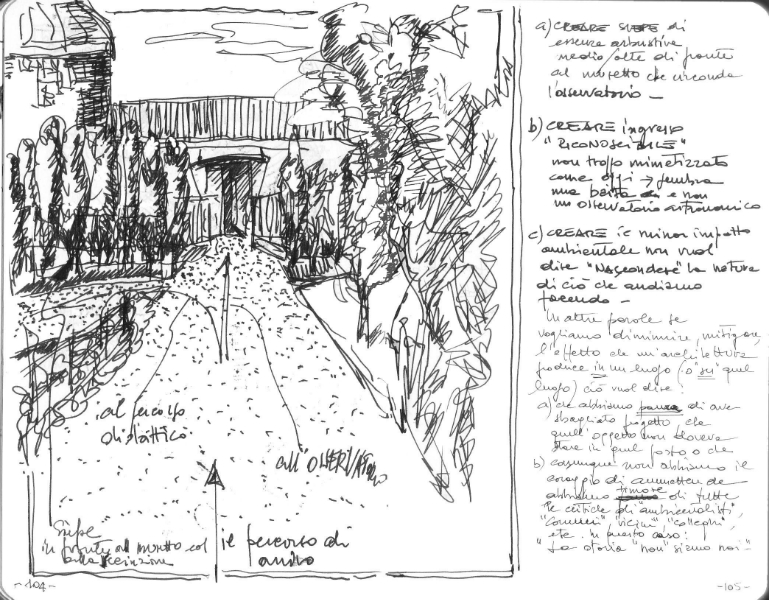 al percorso
didattico
all'OSSERVATORIO
Siepe
in fronte al muretto col
il percorso di
arrivo
- 104 -
a) CREARE SIEPE di
essenze arbustive
medio/alte di fronte
al muretto che circonda
l'osservatorio -
b) CREARE ingresso
"RICONOSCIBILE"
non troppo mimetizzato
come oggi → sembra
una e non
un osservatorio astronomico
c) CREARE il minor impatto
ambientale non vuol
dire "NASCONDERE" la natura
di ciò che andiamo
facendo -
In altre parole se
vogliamo diminuire, mitigare,
l'effetto che un'architettura
produce in un luogo (o "su" quel
luogo) ciò vuol dire:
a) che abbiamo paura di aver
sbagliato progetto che
quell'oggetto non doveva
stare in quel posto o che
b) comunque non abbiamo il
coraggio di ammettere che
abbiamo timore di tutte
le critiche di ambientalisti,
"comuni" "vicini" "colleghi",
etc. in questo caso:
"La storia "non siamo noi" -
- 105 -